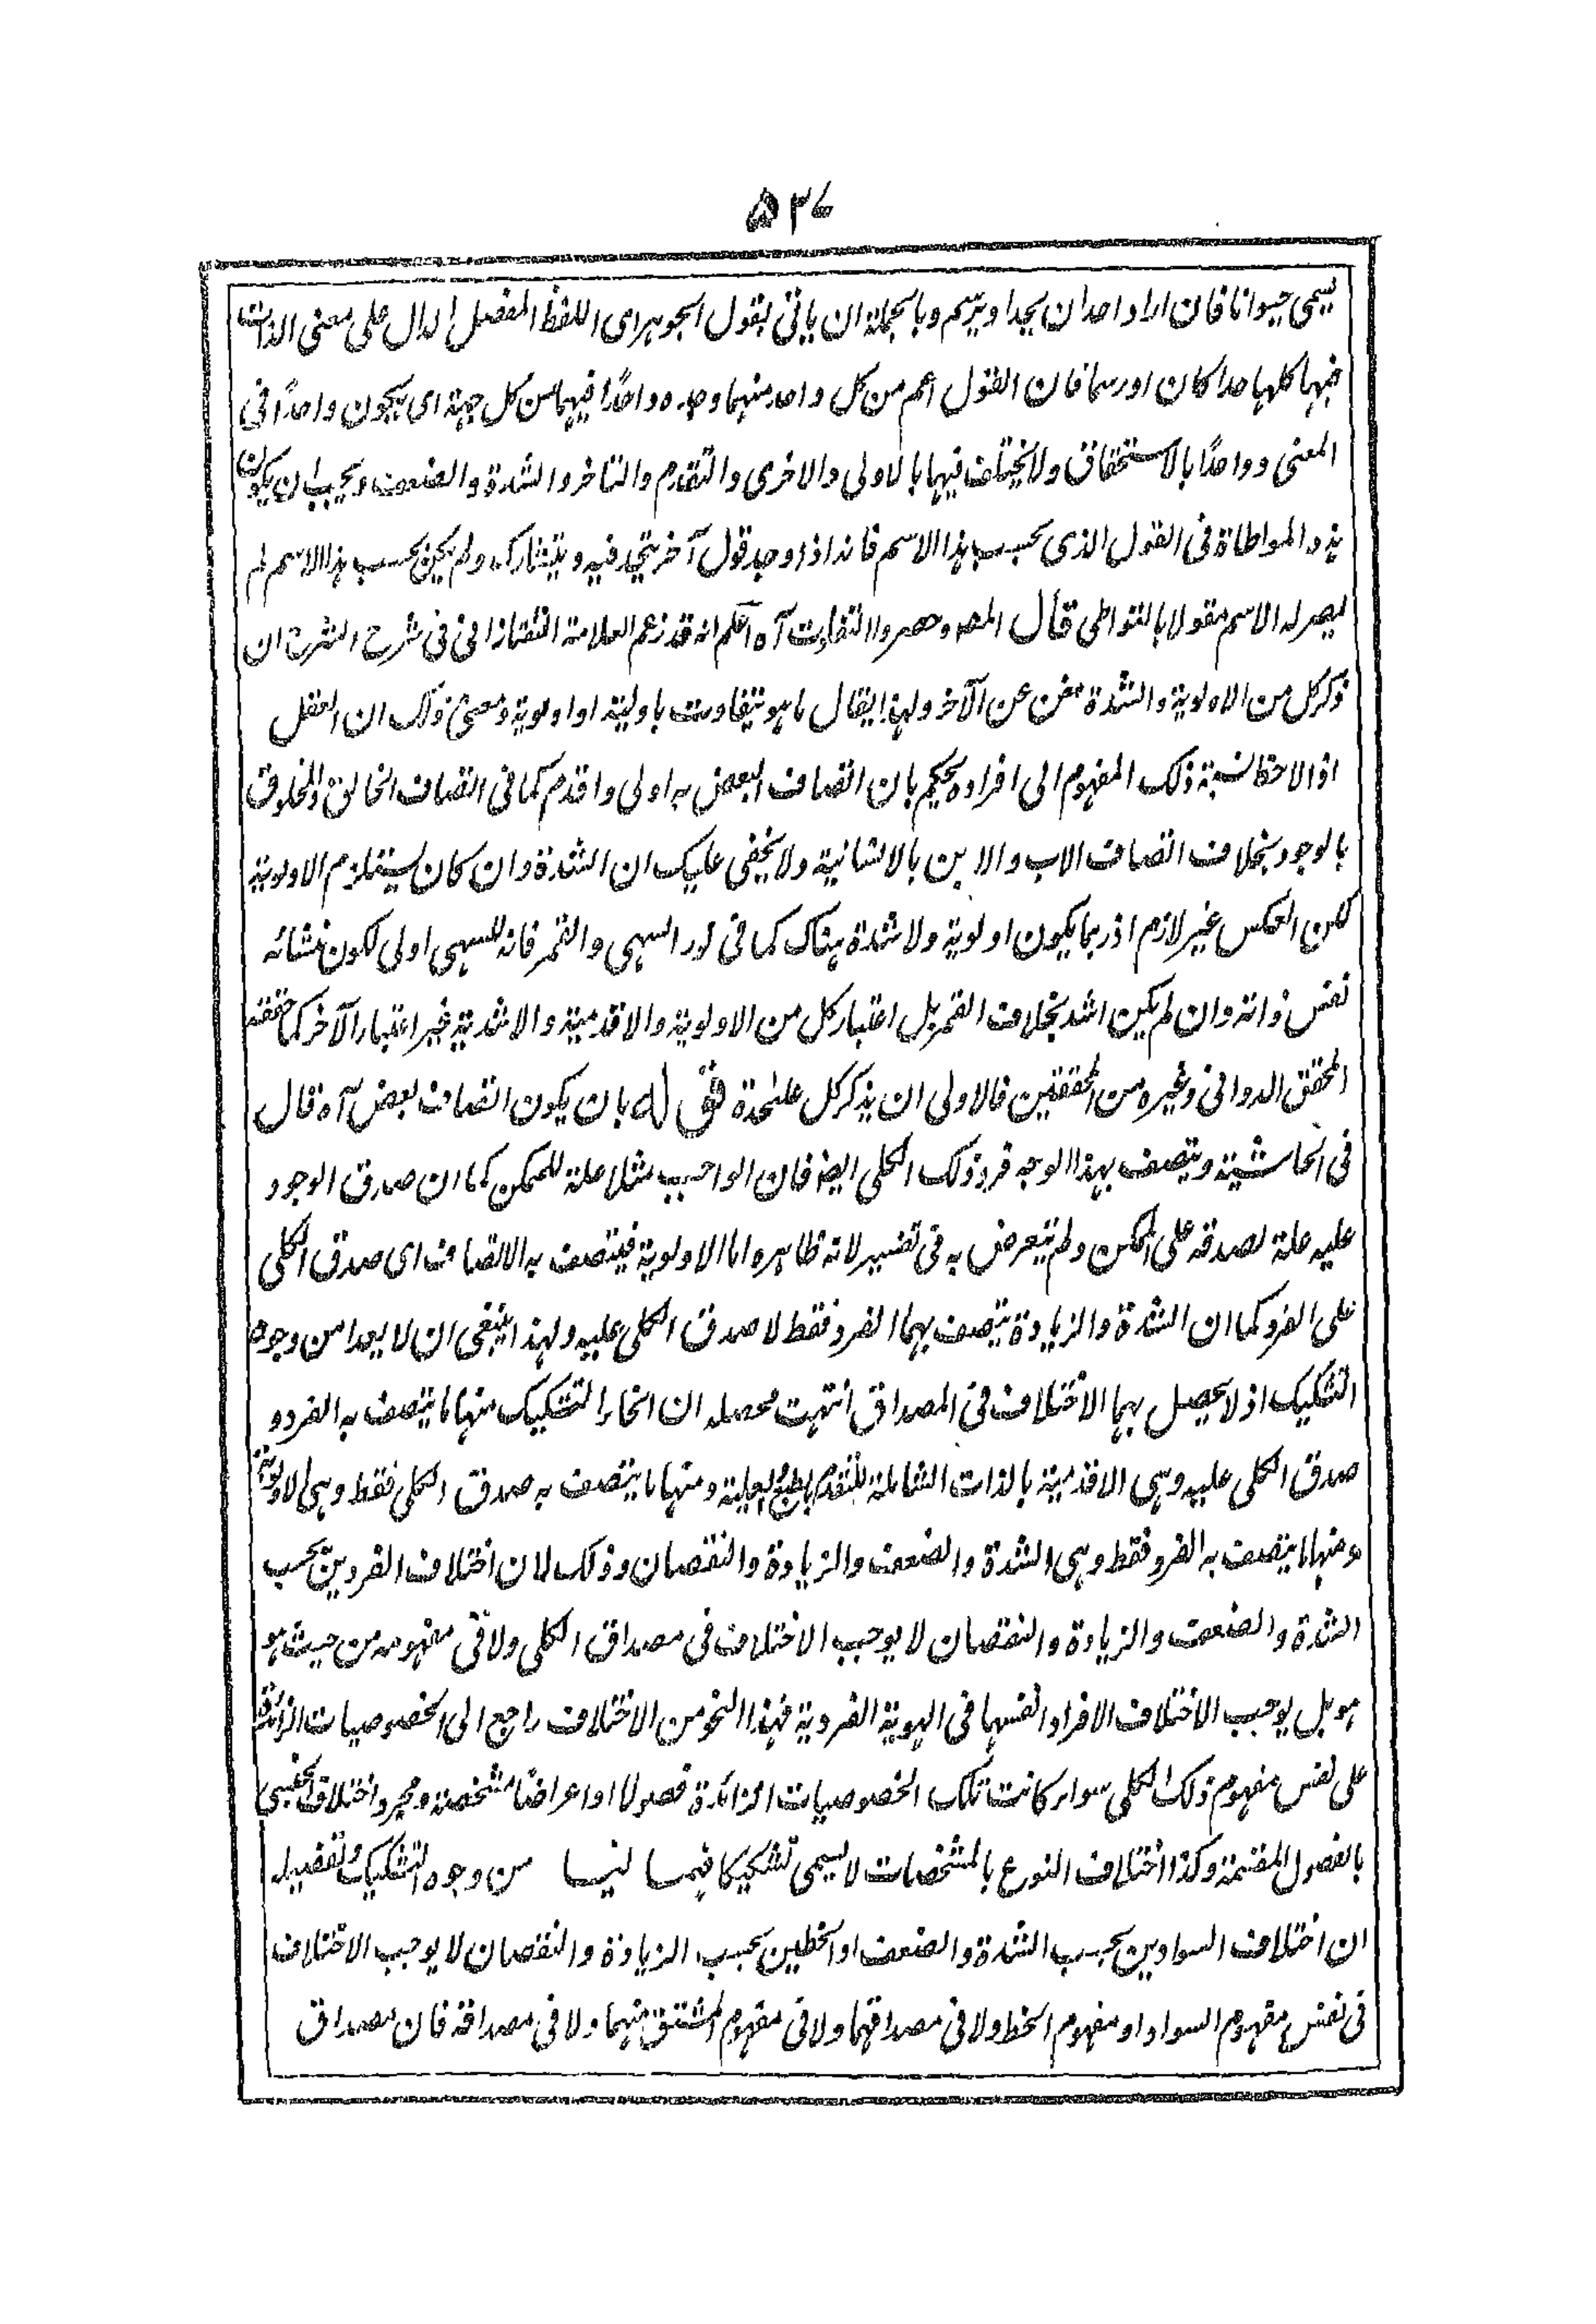 ۵۳۷
يسمى حيوانا فان اراد احد ان يحد او يرسم وبالجملة ان ياتى بقول الجوهر اى اللفظ المفصل الدال على معنى الذات
فيها كلها حدا كان او رسما فان القول اعم من كل واحد منهما وجده واحدًا فيهما من كل جهة اى يكون واحدًا فى
المعنى وواحدًا بالاستحقاق ولا يختلف فيها بالاولى والاخرى والتقدم والتاخر والشدة والضعف ويجب ان يكون
هذه المواطاة فى القول الذى بحسب هذا الاسم فانه اذا وجد قول آخر يتحد فيه ويتشارك ولم يكن بحسب هذا الاسم لم
يصر له الاسم مقولا بالتواطى قال المصـ وحصروا التفاوت آه اعلم انه قد زعم العلامة التفتازانى فى شرح الشرح ان
ذكر كل من الاولوية والشدة مغن عن الآخر ولهذا يقال ما هو يتفاوت باولية او اولوية ومعنى ذلك ان العقل
اذا لاحظ نسبة ذلك المفهوم الى افراده يحكم بان اتصاف البعض به اولى واقدم كما فى اتصاف الخالق والمخلوق
بالوجود بخلاف اتصاف الاب والابن بالانسانية ولا يخفى عليك ان الشدة وان كان يستلزم الاولوية
لكن العكس غير لازم اذ ربما يكون اولوية ولا شدة هناك كما فى نور السهى والقمر فانه للسهى اولى لكون منشائه
نفس ذاته وان لم يكن اشد بخلاف القمر بل اعتبار كل من الاولوية والاقدمية والاشدية غير اعتبار الآخر كما حققه
المحقق الدوانى وغيره من المحققين فالاولى ان يذكر كل علىٰحدة قوله بان يكون اتصاف بعض آه قال
فى الحاشية ويتصف بهذا الوجه فرد ذلك الكلى ايضا فان الواجب مثلا علة للممكن كما ان صدق الوجود
عليه علة لصدقه على الممكن ولم يتعرض به فى تفسير لانه ظاهره اما الاولوية فيتصف به الاتصاف اى صدق الكلى
على الفرد كما ان الشدة والزيادة يتصف بهما الفرد فقط لا صدق الكلى عليه ولهذا ينبغى ان لا يعدا من وجوه
التشكيك اذ لا يحصل بهما الاختلاف فى المصداق انتهت محصله ان انحاء التشكيك منها ما يتصف به الفرد و
صدق الكلى عليه وهى الاقدمية بالذات الشاملة للتقدم بالطبع والعلية ومنها ما يتصف به صدق الكلى فقط وهى الاولوية
ومنها ما يتصف به الفرد فقط وهى الشدة والضعف والزيادة والنقصان وذلك لان اختلاف الفردين بحسب
الشدة والضعف والزيادة والنقصان لا يوجب الاختلاف فى مصداق الكلى ولا فى مفهومه من حيث هو
هو بل يوجب الاختلاف الافراد انفسها فى الهوية الفردية فهذا النحو من الاختلاف راجع الى الخصوصيات الزائدة
على نفس مفهوم ذلك الكلى سواء كانت تلك الخصوصيات الزائدة فصولا او اعراضًا مشخصة ومجرد اختلاف الجنسى
بالفصول المقسمة وكذا اختلاف النوع بالمشخصات لا يسمى تشكيكا فهما ليسا من وجوه التشكيك وتفصيله
ان اختلاف السوادين بحسب الشدة والضعف او الخطين بحسب الزيادة والنقصان لا يوجب الاختلاف
فى نفس مفهوم السواد او مفهوم الخط ولا فى مصداقهما ولا فى مفهوم المشتق منهما ولا فى مصداقه فان مصداق